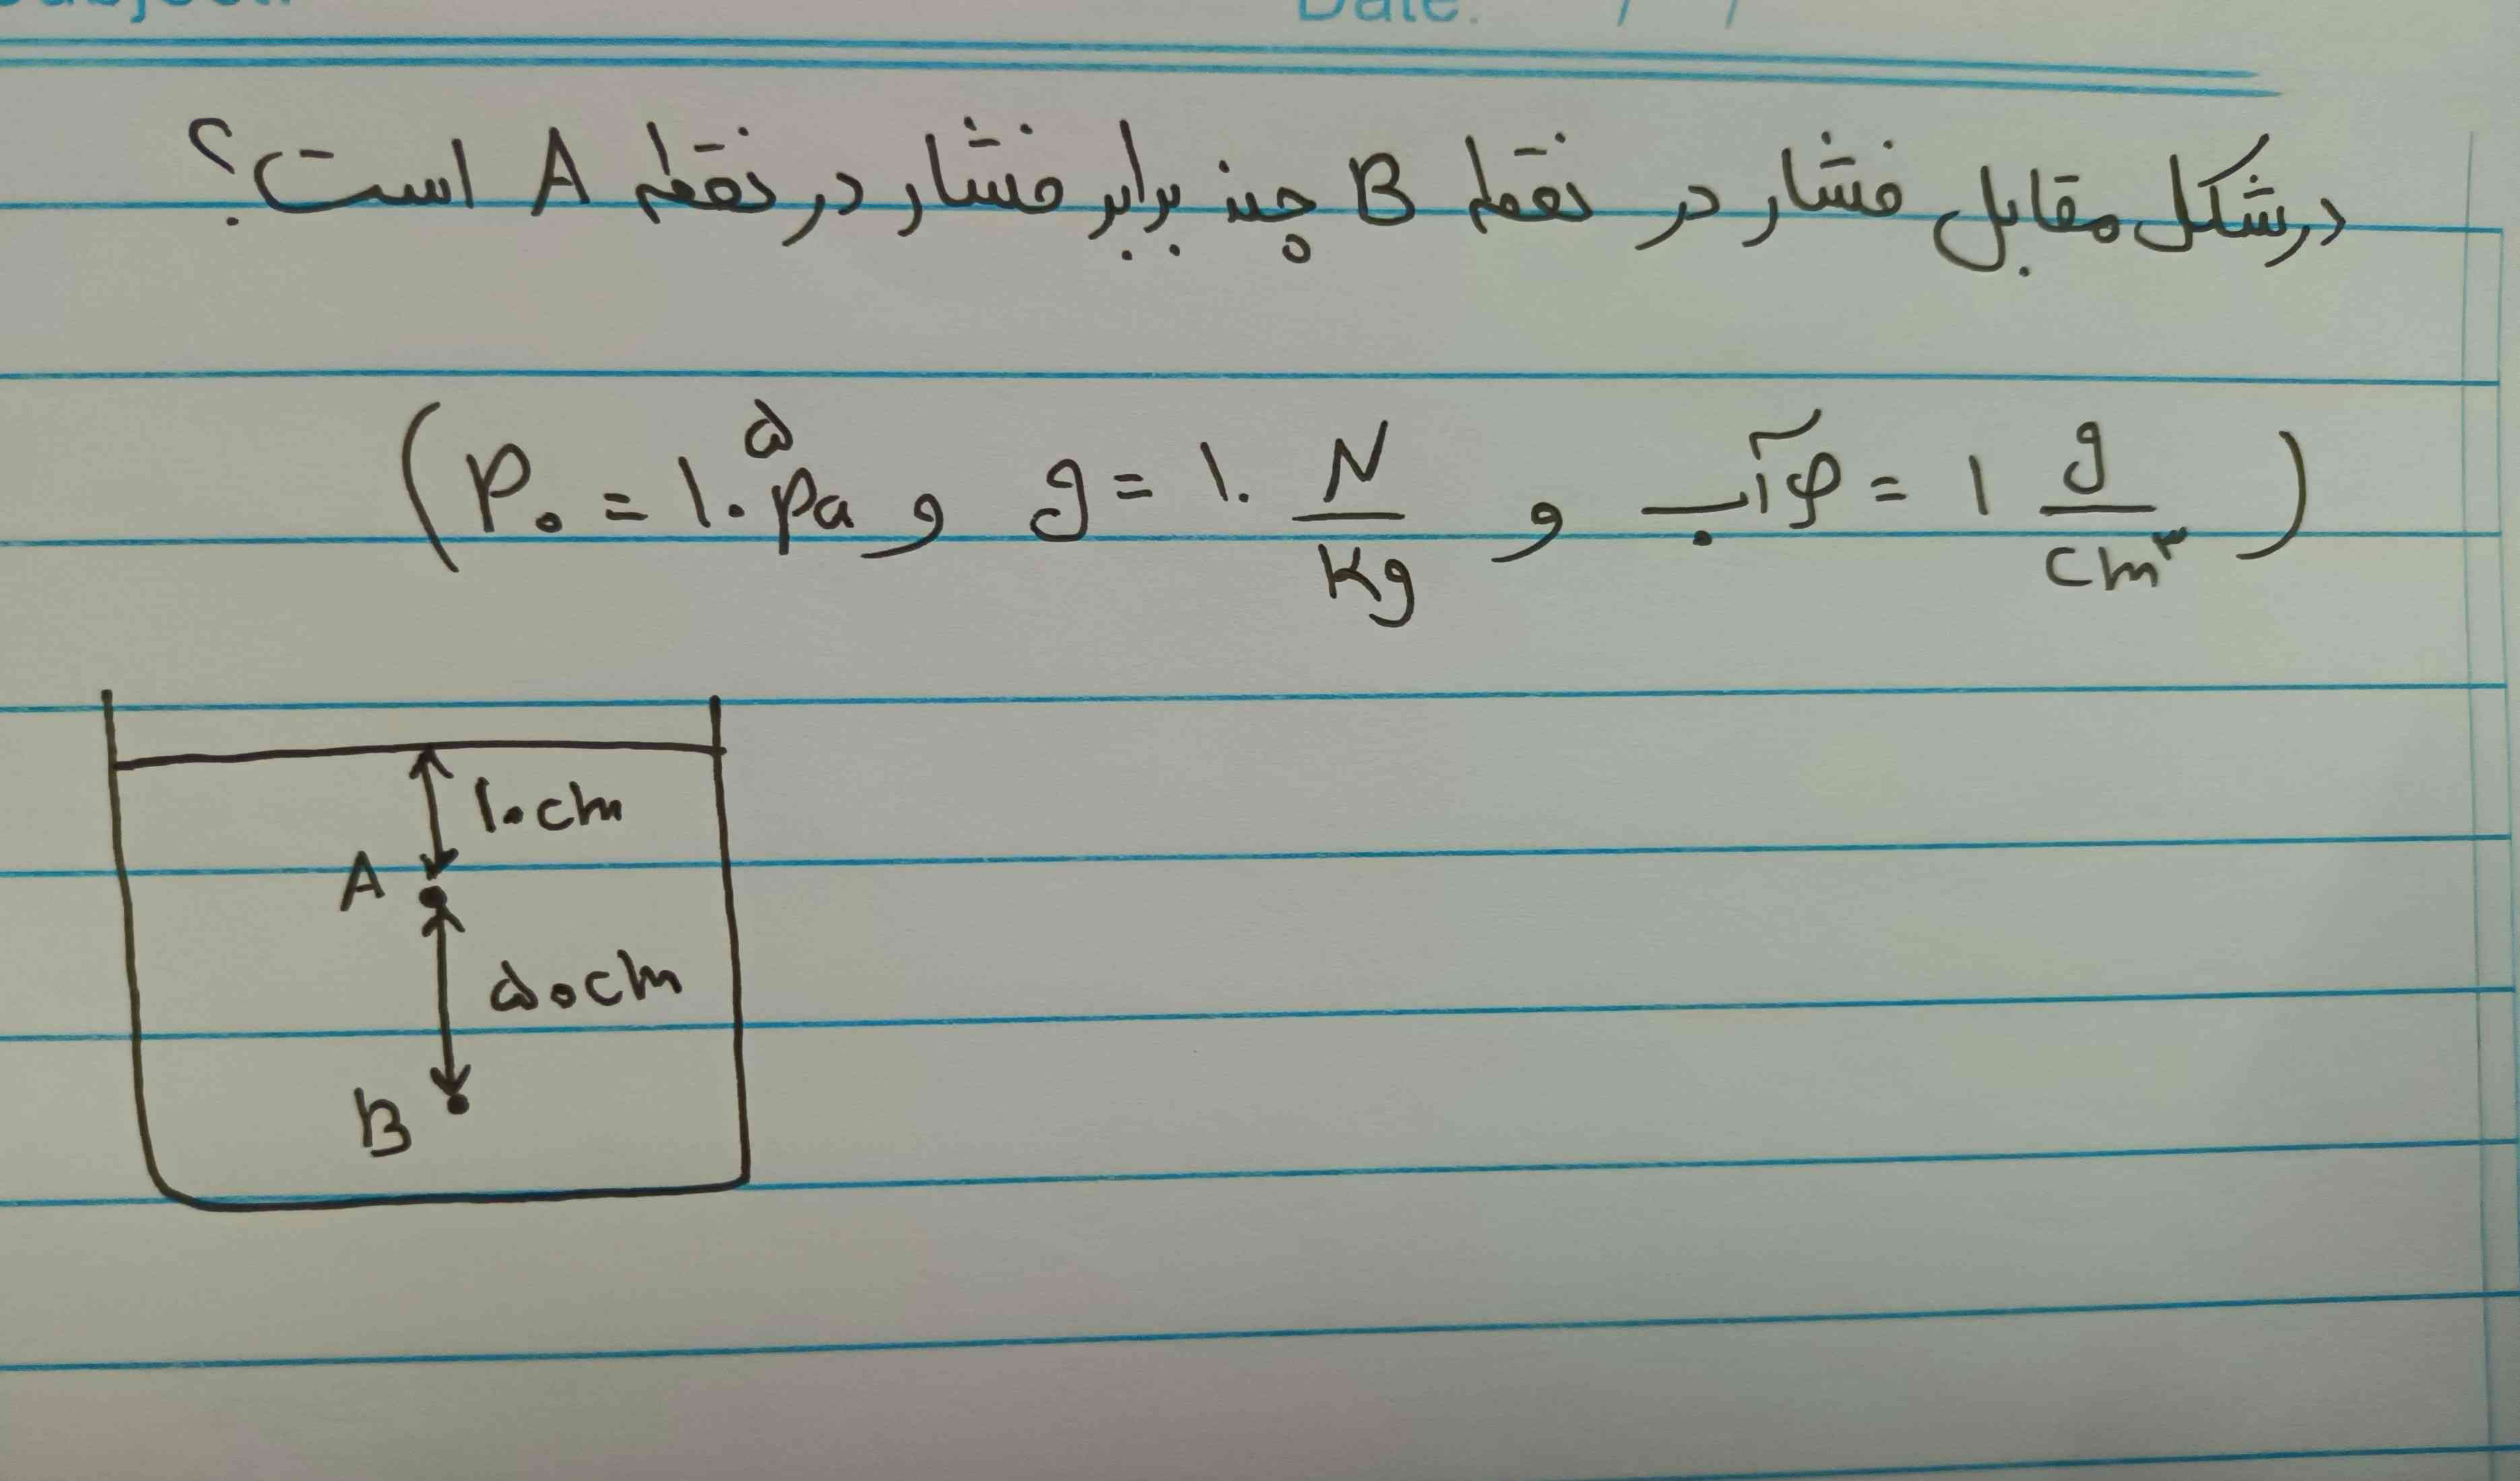 Date: / /
در شکل مقابل فشار در نقطه B چند برابر فشار در نقطه A است؟
(P₀ = ۱۰^۵ pa و g = ۱۰ N/kg و ρآب = ۱ g/cm^۳)
۱۰cm
A
۵۰cm
B